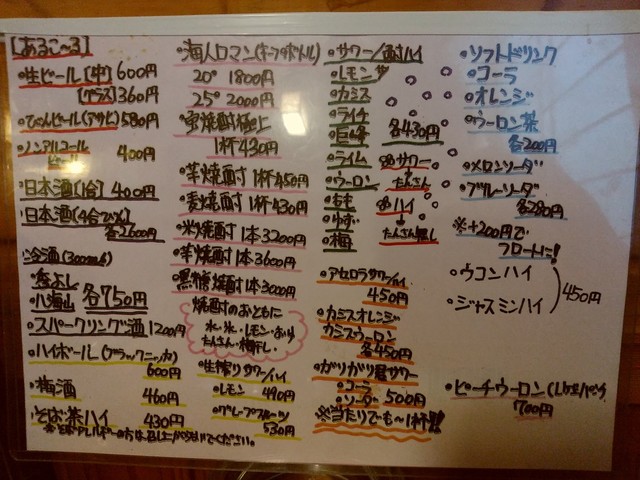 [あるこ〜る]
・生ビール[中] 600円
[グラス] 360円
・びんビール(アサヒ) 580円
・ノンアルコール
ビール 400円
・日本酒[1合] 400円
・日本酒
各2600円
・冷酒(300ml)
・秀よし
・八海山 各750円
・スパークリング酒 1200円
・ハイボール(ブラックニッカ)
600円
・梅酒 460円
・そば茶ハイ 430円
・海人ロマン(キープボトル)
20° 1800円
25° 2000円
・宝焼酎極上
1杯430円
・芋焼酎 1杯450円
・麦焼酎 1杯430円
・米焼酎 1本3200円
・芋焼酎 1本3600円
・黒糖焼酎 1本3000円
焼酎のおともに
水・氷・レモン・お湯
たんさん・梅干し・
・生搾りサワー/ハイ
・レモン 490円
・グレープフルーツ
530円
・サワー/酎ハイ
・レモン
・カミス
・ライチ
・巨峰 各430円
・ライム
・ウーロン
・もも
・ゆず
・梅
サワー
↓
たんさん
ハイ
↓
たんさん無し
・アセロラサワー/ハイ
450円
・カシスオレンジ
カシスウーロン
各450円
・ガリガリ君サワー
・コーラ
・ソーダ 500円
※当たりでも〜1杯!!
・ソフトドリンク
・コーラ
・オレンジ
・ウーロン茶
各200円
・メロンソーダ
・ブルーソーダ
各280円
※+200円で
フロートに!
・ウコンハイ
・ジャスミンハイ
450円
・ピーチウーロン
700円